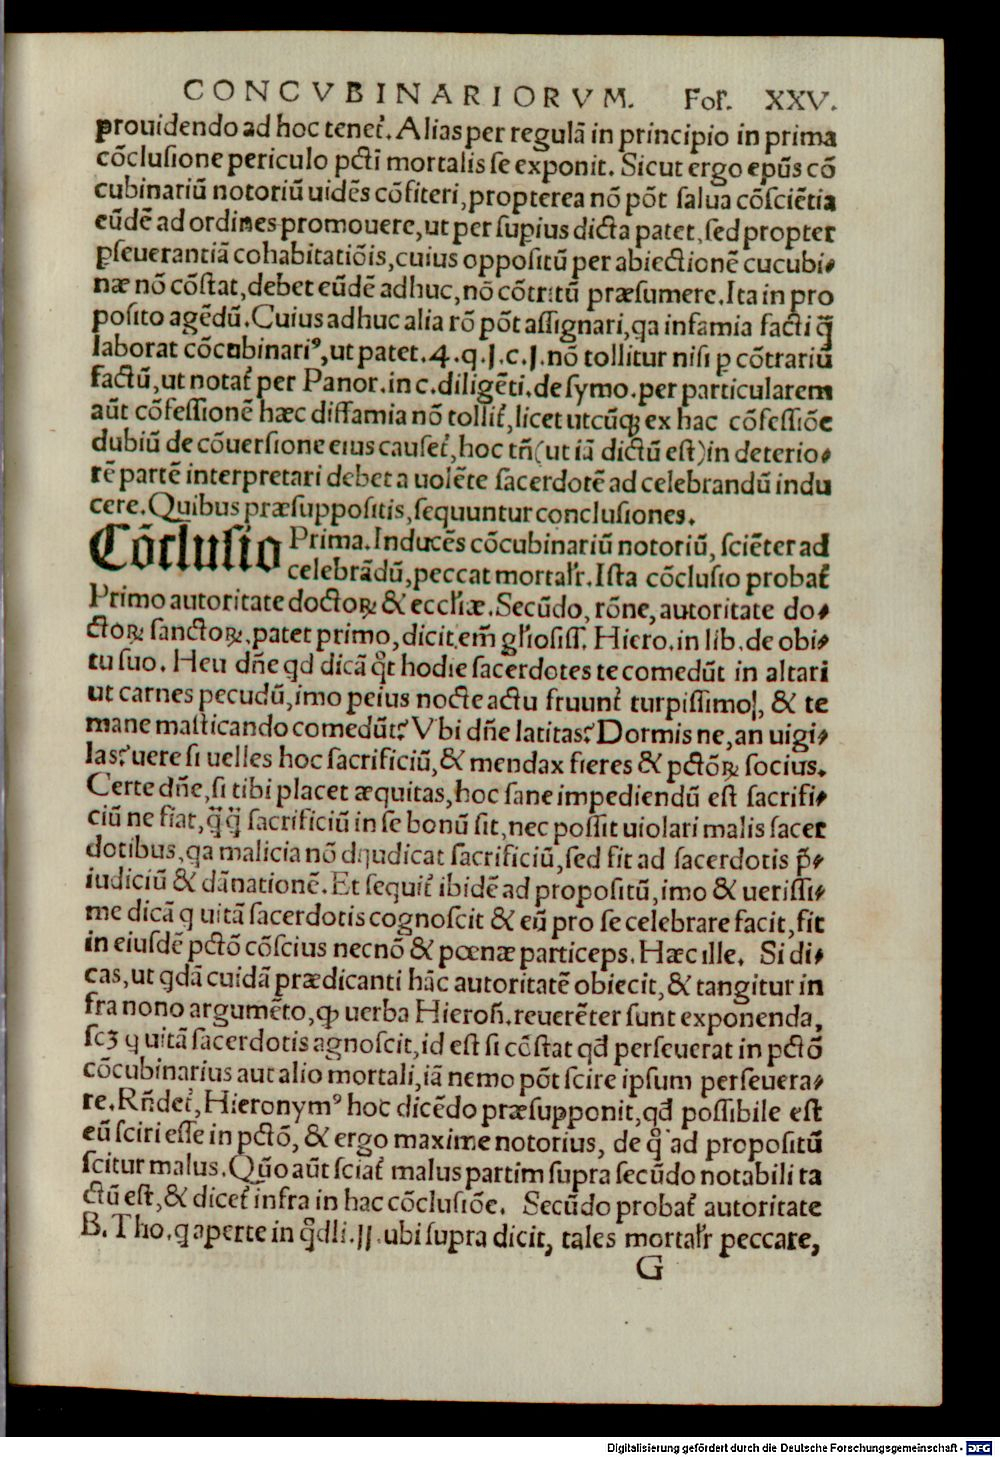 CONCVBINARIORVM. Fol. XXV.
prouidendo ad hoc tenet᷑. Alias per regulā in principio in prima
cōclusione periculo pcti mortalis se exponit. Sicut ergo epūs cō
cubinariū notoriū uidēs cōfiteri, propterea nō pōt salua cōsciētia
eūdē ad ordines promouere, ut per supius dicta patet, sed propter
ꝑseuerantiā cohabitatiōis, cuius oppositū per abiectionē cucubi⸗
næ nō cōstat, debet eūdē adhuc, nō cōtritū præsumere. Ita in pro
posito agēdū. Cuius adhuc alia rō pōt assignari, qa infamia facti q̄
laborat cōcubinariꝰ, ut patet. 4. q. J. c. J. nō tollitur nisi ꝑ cōtrariū
factū, ut notat᷑ per Panor. in c. diligēti. de symo. per particularem
aūt cōfessionē hæc diffamia nō tollit᷑, licet utcūqꝫ ex hac cōfessiōe
dubiū de cōuersione eius causet᷑, hoc tn̄ (ut iā dictū est) in deterio⸗
rē partē interpretari debet a uolēte sacerdotē ad celebrandū indu
cere. Quibus præsuppositis, sequuntur conclusiones.
Cōclusio Prima. Inducēs cōcubinariū notoriū, sciēter ad
celebrādū, peccat mortalr̄. Ista cōclusio probat᷑
Primo autoritate doctoꝝ & eccl̄iæ. Secūdo, rōne, autoritate do⸗
ctoꝝ sanctoꝝ. patet primo, dicit em̄ gl̄iosiss. Hiero. in lib. de obi⸗
tu suo. Heu dn̄e qd dicā qt hodie sacerdotes te comedūt in altari
ut carnes pecudū, imo peius nocte actu fruunt᷑ turpissimo, & te
mane masticando comedūt? Vbi dn̄e latitas? Dormis ne, an uigi⸗
las? uere si uelles hoc sacrificiū, & mendax fieres & pctōꝝ socius.
Certe dn̄e, si tibi placet æquitas, hoc sane impediendū est sacrifi⸗
ciū ne fiat, q̄q̄ sacrificiū in se bonū sit, nec possit uiolari malis sacer
dotibus, qa malicia nō dijudicat sacrificiū, sed fit ad sacerdotis p̄⸗
iudiciū & dānationē. Et sequit᷑ ibidē ad propositū, imo & uerissi⸗
me dicā q uitā sacerdotis cognoscit & eū pro se celebrare facit, fit
in eiusdē pctō cōscius necnō & pœnæ particeps. Hæc ille. Si di⸗
cas, ut qdā cuidā prædicanti hāc autoritatē obiecit, & tangitur in
fra nono argumēto, ꝙ uerba Hieron̄. reuerēter sunt exponenda,
scꝫ q uitā sacerdotis agnoscit, id est si cōstat qd̄ perseuerat in pctō
cōcubinarius aut alio mortali, iā nemo pōt scire ipsum perseuera⸗
re. Rn̄det᷑, Hieronymꝰ hoc dicēdo præsupponit, qd̄ possibile est
eū sciri esse in pctō, & ergo maxime notorius, de q̊ ad propositū
scitur malus. Quō aūt sciat᷑ malus partim supra secūdo notabili ta
ctū est, & dicet᷑ infra in hac cōclusiōe. Secūdo probat᷑ autoritate
B. Tho. q aperte in q̊dli. JJ. ubi supra dicit, tales mortalr̄ peccare,
G
Digitalisierung gefördert durch die Deutsche Forschungsgemeinschaft - DFG